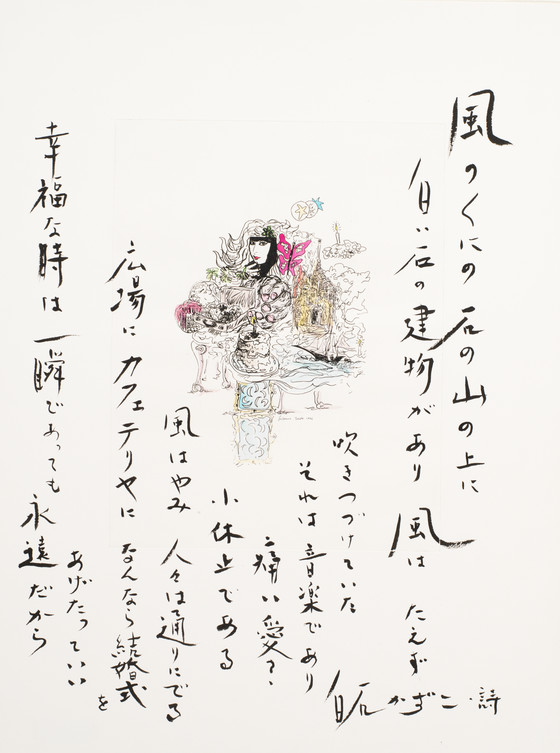 風のくにの石の山の上に
白い石の建物があり 風は たえず
吹きつづけていた
それは音楽であり
痛い愛
小休止である
風はやみ 人々は通りにでる
広場に カフェテリヤに なんなら結婚式を
あげたっていい
幸福な時は一瞬であっても永遠だから
白石かずこ・詩